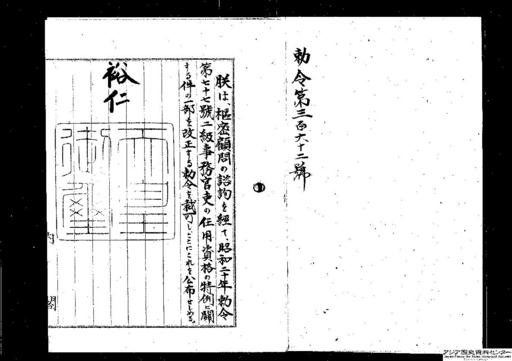 勅令第三百六十二號
朕は、樞密顧問の諮詢を經て、昭和二十年勅令
第七十七號二級事務官吏の任用資格の特例に關
する件の一部を改正する勅令を裁可し、ここにこれを公布せしめる。
裕仁
天皇
御璽
内閣
アジア歴史資料センター